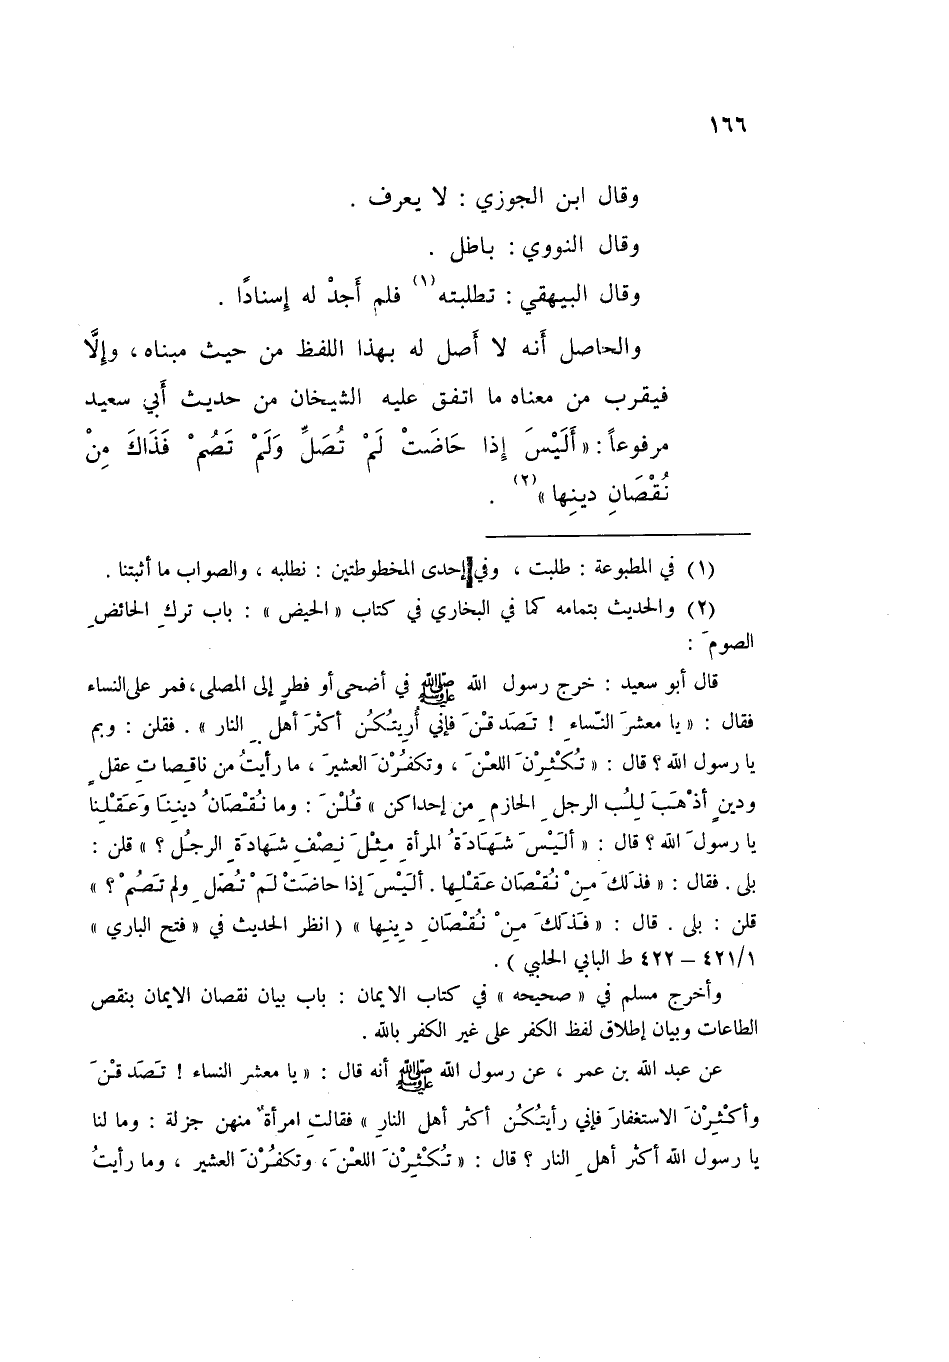 ١٦٦
وقال ابن الجوزي : لا يعرف .
وقال النووي : باطل .
وقال البيهقي : تطلبته(١) فلم أَجدْ له إسنادًا .
والحاصل أَنه لا أَصل له بهذا اللفظ من حيث مبناه ، وإلَّا
فيقرب من معناه ما اتفق عليه الشيخان من حديث أَبي سعيد
مرفوعاً : « أَلَيْسَ إِذا حَاضَتْ لَمْ تُصَلِّ وَلَمْ تَصُمْ فَذَاكَ مِنْ
نُقْصَانِ دينِها »(٢) .
(١) في المطبوعة : طلبت ، وفي إحدى المخطوطتين : نطلبه ، والصواب ما أثبتنا .
(٢) والحديث بتمامه كما في البخاري في كتاب « الحيض » : باب تركِ الحائضِ
الصومَ :
قال أبو سعيد : خرج رسول الله ﷺ في أضحى أو فطرٍ إلى المصلى ، فمر على النساء
فقال : « يا معشرَ النّساءِ ! تَصَدقْنَ فإني أُريتُكُن أكثرَ أهلِ النار » . فقلن : وبم
يا رسول الله ؟ قال : « تُكْثِرْنَ اللعْنَ ، وتكفُرْنَ العشيرَ ، ما رأيتُ من ناقصاتِ عقلٍ
ودينٍ أذْهَبَ لِلُب الرجلِ الحازمِ من إحداكن » قُلْنَ : وما نُقْصَانُ ديننا وَعَقْلِنا
يا رسولَ الله ؟ قال : « أليْسَ شَهَادَةُ المرأةِ مِثْلَ نِصْفِ شَهادَةِ الرجُل ؟ » قلن :
بلى . فقال : « فذلكَ مِنْ نُقْصَان عَقْلِها . أليْسَ إذا حاضَتْ لَمْ تُصَلِ ولم تَصُمْ ؟ »
قلن : بلى . قال : « فَذلكَ مِنْ نُقْصَانِ دينِها » ( انظر الحديث في « فتح الباري »
١/‏٤٢١ – ٤٢٢ ط البابي الحلبي ) .
وأخرج مسلم في « صحيحه » في كتاب الايمان : باب بيان نقصان الايمان بنقص
الطاعات وبيان إطلاق لفظ الكفر على غير الكفر بالله .
عن عبد الله بن عمر ، عن رسول الله ﷺ أنه قال : « يا معشر النساء ! تَصَدقْنَ
وأكْثِرْنَ الاستغفارَ فإني رأيتُكُن أكثر أهل النارِ » فقالتِ امرأةٌ منهن جزلة : وما لنا
يا رسول الله أكثر أهلِ النار ؟ قال : « تُكْثِرْنَ اللعْنَ ، وتكفُرْنَ العشير ، وما رأيتُ